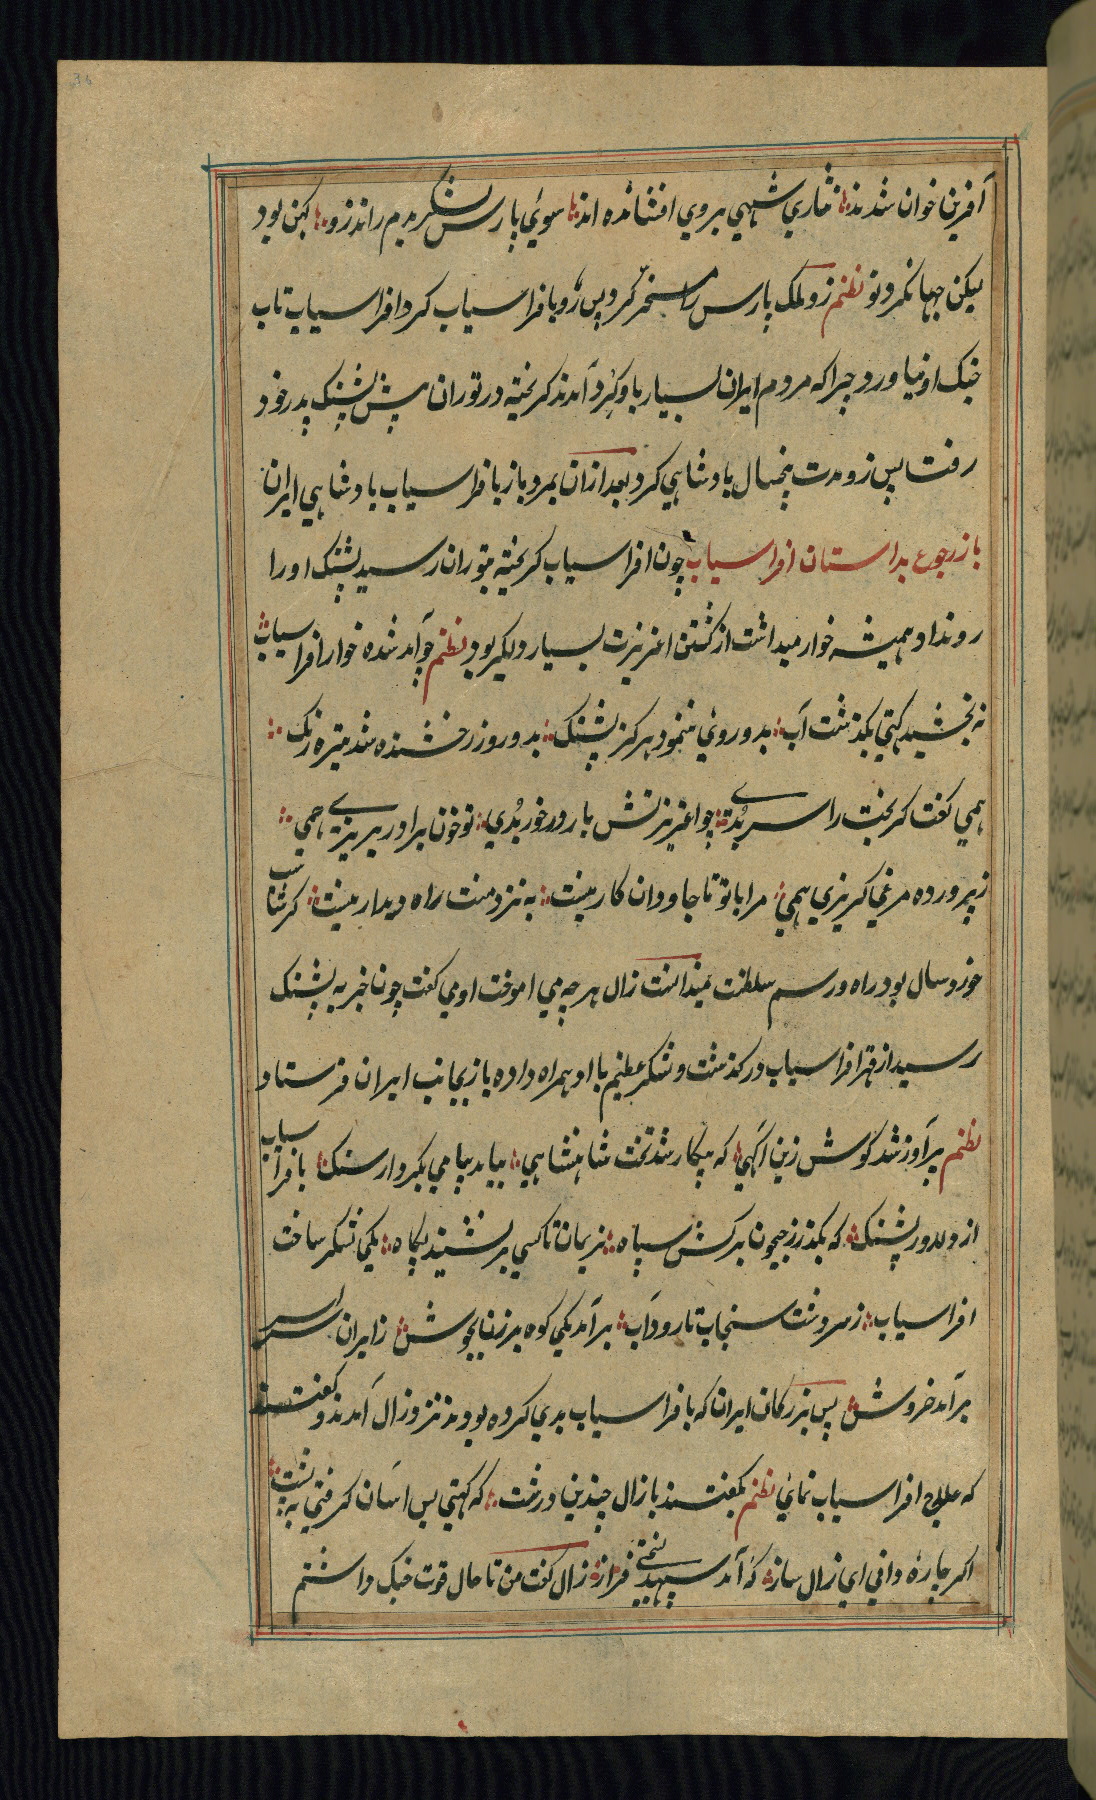 آفرین خوان شدند نثاری شهی بروی افشانده اند سوئی پارس لشکر بدم راند زو کهن بود
لیکن جهان کرد نو نظم زو ملک پارس را مسخر کرد پس رو بافراسیاب کرد افراسیاب تاب
جنک او نیاورد چرا که مردم ایران بسیار باو گرد آمدند کریخته در توران پیش پشنک پدر خود
رفت پس زو مدت پنجسال پادشاهی کرد بعد ازان بمرد باز بافراسیاب پادشاهی ایران
باز رجوع بداستان افراسیاب چون افراسیاب کریخته بتوران رسید پشنک او را
رو نداد همیشه خوار میداشت از کشتن اغریرت بسیار دلکیر بود نظم چو آمد شده خوار افراسیاب
نه بخشید کیتی بکذشت آب بدو روئی ننمود هرکز پشنک بدو روز رخشنده شد تیره رنک
همی کفت کر بخت را سر بدی چو اغریرتش یار درخور بدی تو خون برادر بریزی همی
ز پرورده مرغی کریزی همی مرا با تو تا جاودان کار نیست به نزد منت راه دیدار نیست کرشاسب
خورد سال بود راه و رسم سلطنت نمیدانست زال هر چه می اموخت او می کفت چون خبر به پشنک
رسید از قهر افراسیاب در کذشت و لشکر عظیم با او همراه داده باز بجانب ایران فرستاد
نظم پر آواز شد کوش زین آکهی که بیکار شد تخت شاهنشاهی بیامد پیامی بکردار سنک بافراسیاب
از دلاور پشنک که بکذر ز جیحون برکش سپاه بزمان تا کسی بر نشیند بکاه یکی لشکر ساخت
افراسیاب ز سر دشت سنجاب تا رود آب برآمد یکی کوه برزن بجوش ز ایران سراسر
برآمد خروش پس بزرکان ایران که بافراسیاب بدی کرده بودند نزد زال آمدند و کفتند
که علاج افراسیاب نمائی نظم بکفتند با زال چندین درشت که کیتی بس اسان کرفتی به پشت
اکر چاره دانی ای زال ساز که آمد سپهبد بسختی فراز زال کفت من تا حال قوت جنک داشتم